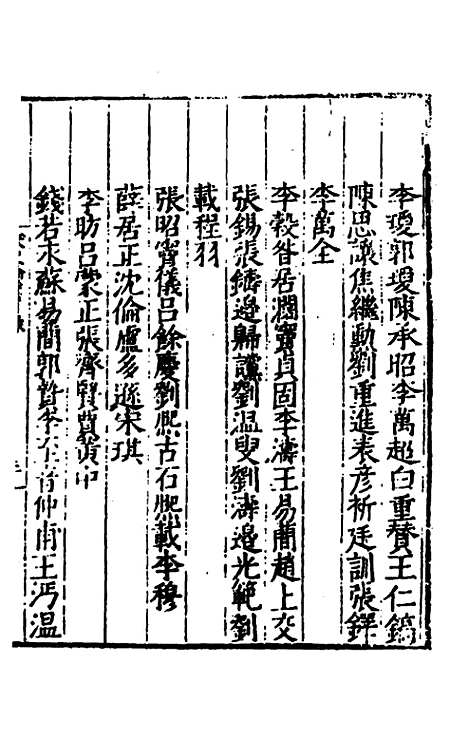 李瓊郭瓊陳承昭李萬超白重贊王仁鎬
陳思讓焦繼勳劉重進袁彥祈廷訓張鐸
李萬全
李穀昝居潤竇貞固李濤王易簡趙上交
張錫張鑄邊歸讜劉溫叟劉濤邊光範劉
載程羽
張昭竇儀呂餘慶劉熙古石熙載李穆
薛居正沈倫盧多遜宋琪
李昉呂蒙正張齊賢賈黃中
錢若水蘇易簡郭贄李至辛仲甫王沔溫